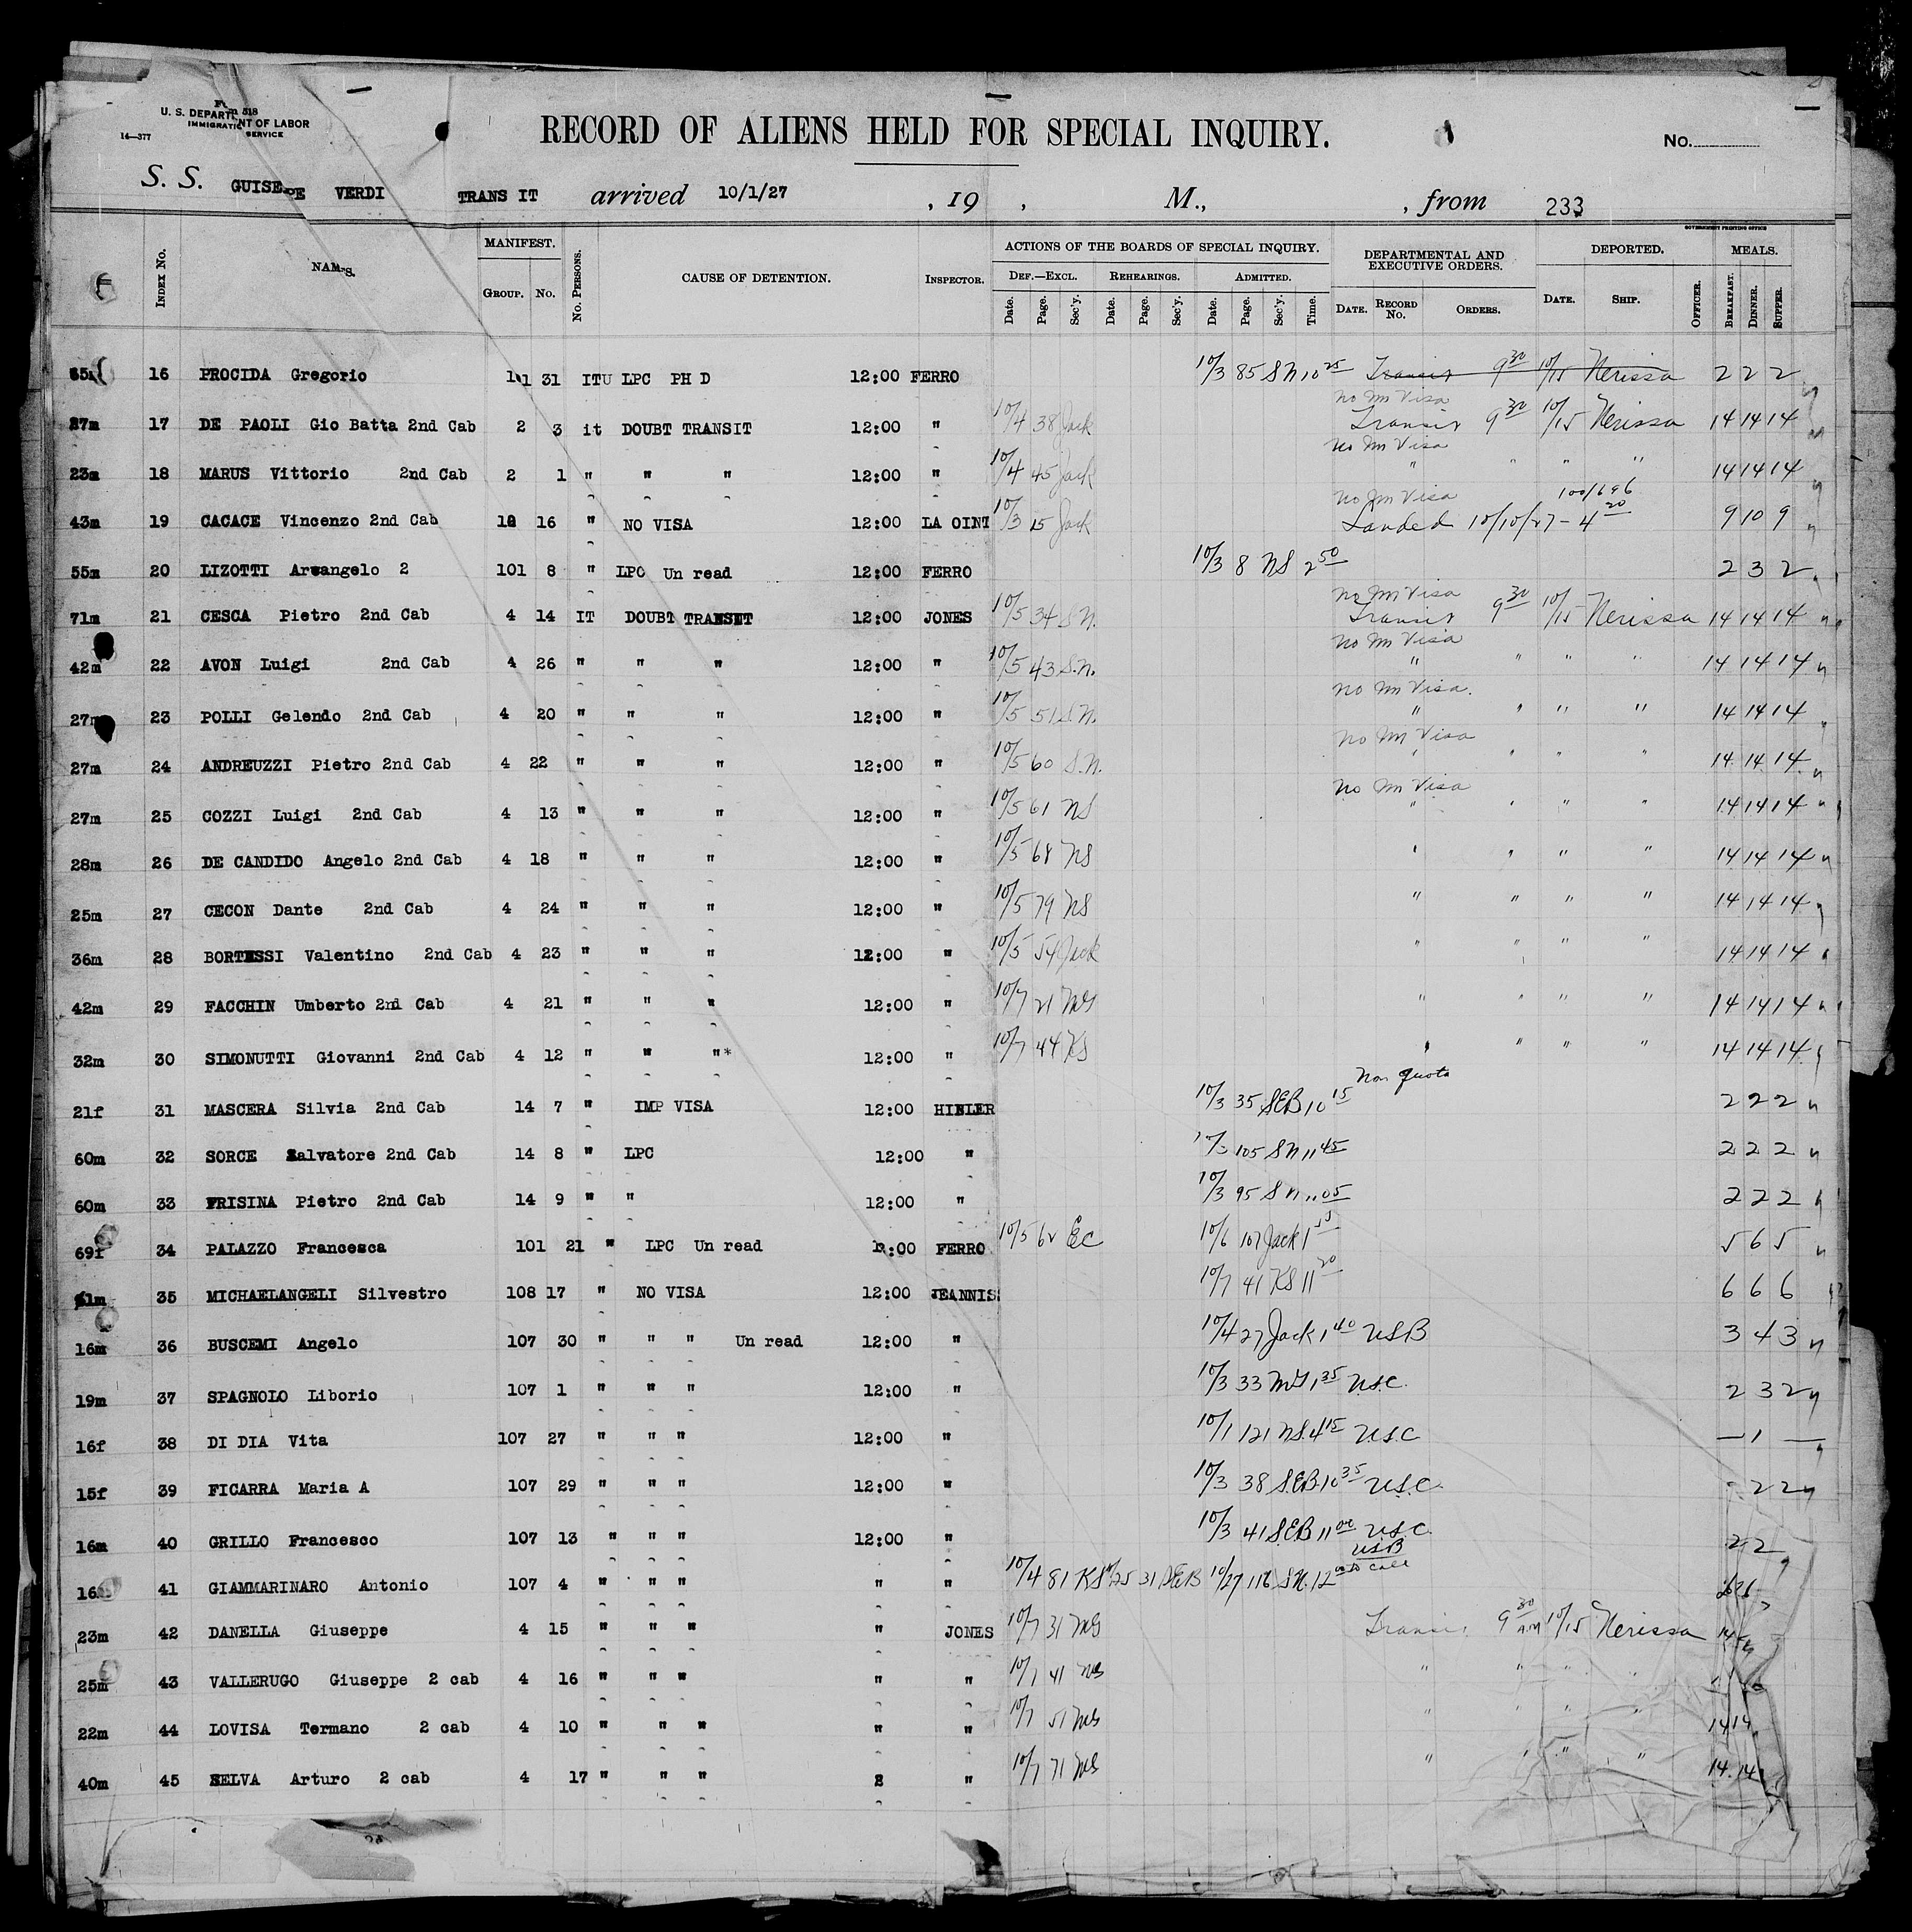 Form 518
U. S. DEPARTMENT OF LABOR
IMMIGRATION SERVICE
14—377
RECORD OF ALIENS HELD FOR SPECIAL INQUIRY.
No.
S. S. GUISEPPE VERDI TRANS IT arrived 10/1/27 , 19 , M., , from 233
GOVERNMENT PRINTING OFFICE
INDEX NO. NAMES. MANIFEST. GROUP. NO. NO. PERSONS. CAUSE OF DETENTION. INSPECTOR. ACTIONS OF THE BOARDS OF SPECIAL INQUIRY. DEPARTMENTAL AND EXECUTIVE ORDERS. DEPORTED. MEALS.
DEF.—EXCL. REHEARINGS. ADMITTED.
Date. Page. Sec'y. Date. Page. Sec'y. Date. Page. Sec'y. Time. DATE. RECORD No. ORDERS. DATE. SHIP. OFFICER. BREAKFAST. DINNER. SUPPER.
16 PROCIDA Gregorio 31 ITU LPC PH D 12:00 FERRO 10/3 85 SN 10 25 Transit 9 30 10/15 Nerissa 2 2 2
no Im Visa
27m 17 DE PAOLI Gio Batta 2nd Cab 2 3 it DOUBT TRANSIT 12:00 " 10/4 38 Jack Transit 9 30 10/15 Nerissa 14 14 14
no Im Visa
23m 18 MARUS Vittorio 2nd Cab 2 1 " " " 12:00 " 10/4 45 Jack " " " " 14 14 14
no Im Visa 100/696
43m 19 CACACE Vincenzo 2nd Cab 16 " NO VISA 12:00 LA OINT 10/3 15 Jack Landed 10/10/27 - 4 20 9 10 9
55m 20 LIZOTTI Arcangelo 2 101 8 " LPC Un read 12:00 FERRO 10/3 8 NS 2 50 2 3 2
no Im Visa
71m 21 CESCA Pietro 2nd Cab 4 14 IT DOUBT TRANSIT 12:00 JONES 10/5 34 S.N. Transit 9 30 10/15 Nerissa 14 14 14
no Im Visa
42m 22 AVON Luigi 2nd Cab 4 26 " " " 12:00 " 10/5 43 S.N. " " " " 14 14 14
no Im Visa.
27m 23 POLLI Gelendo 2nd Cab 4 20 " " " 12:00 " 10/5 51 S.N. " " " " 14 14 14
no Im Visa
27m 24 ANDREUZZI Pietro 2nd Cab 4 22 " " " 12:00 " 10/5 60 S.N. " " " " 14 14 14
no Im Visa
27m 25 COZZI Luigi 2nd Cab 4 13 " " " 12:00 " 10/5 61 NS " " " " 14 14 14
28m 26 DE CANDIDO Angelo 2nd Cab 4 18 " " " 12:00 " 10/5 68 NS " " " " 14 14 14
25m 27 CECON Dante 2nd Cab 4 24 " " " 12:00 " 10/5 79 NS " " " " 14 14 14
36m 28 BORTESSI Valentino 2nd Cab 4 23 " " " 12:00 " 10/5 54 Jack " " " " 14 14 14
42m 29 FACCHIN Umberto 2nd Cab 4 21 " " " 12:00 " 10/7 21 MS " " " " 14 14 14
32m 30 SIMONUTTI Giovanni 2nd Cab 4 12 " " "* 12:00 " 10/7 44 KS " " " " 14 14 14
Non quota
21f 31 MASCERA Silvia 2nd Cab 14 7 " IMP VISA 12:00 10/3 35 SEB 10 15 2 2 2
60m 32 SORCE Salvatore 2nd Cab 14 8 " LPC 12:00 " 10/3 105 SN 11 45 2 2 2
60m 33 FRISINA Pietro 2nd Cab 14 9 " " 12:00 " 10/3 95 SN 11 05 2 2 2
69f 34 PALAZZO Francesca 101 21 " LPC Un read 12:00 FERRO 10/5 62 EC 10/6 107 Jack 1 55 5 6 5
35 MICHAELANGELI Silvestro 108 17 " NO VISA 12:00 JEANNIS 10/7 41 KS 11 20 6 6 6
16m 36 BUSCEMI Angelo 107 30 " " " Un read 12:00 " 10/4 27 Jack 1 40 USB 3 4 3
19m 37 SPAGNOLO Liborio 107 1 " " " 12:00 " 10/3 33 MS 1 35 U.S.C. 2 3 2
16f 38 DI DIA Vita 107 27 " " " 12:00 " 10/1 121 NS. 4 15 U.S.C — 1 —
15f 39 FICARRA Maria A 107 29 " " " 12:00 " 10/3 38 SEB 10 35 U.S.C. - 2 2
16m 40 GRILLO Francesco 107 13 " " " 12:00 " 10/3 41 SEB 11 00 U.S.C. 2 2
USB
16m 41 GIAMMARINARO Antonio 107 4 " " " " " 10/4 81 KS 10/25 31 SEB 10/27 116 SN. 12
23m 42 DANELLA Giuseppe 4 15 " " " " JONES 10/7 31 MS Transit 9 30 AM 10/15 Nerissa
25m 43 VALLERUGO Giuseppe 2 cab 4 16 " " " " " 10/7 41 MS " " " "
22m 44 LOVISA Termano 2 cab 4 10 " " " " " 10/7 51 MS " " " " 14 14
40m 45 SELVA Arturo 2 cab 4 17 " " " " 10/7 71 MS " " " " 14 14